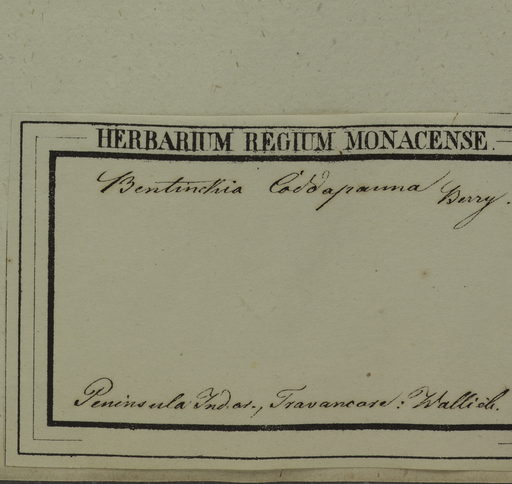 HERBARIUM REGIUM MONACENSE
Bentinckia Coddapanna Berry.
Peninsula Ind. or., Travancore: Wallich.